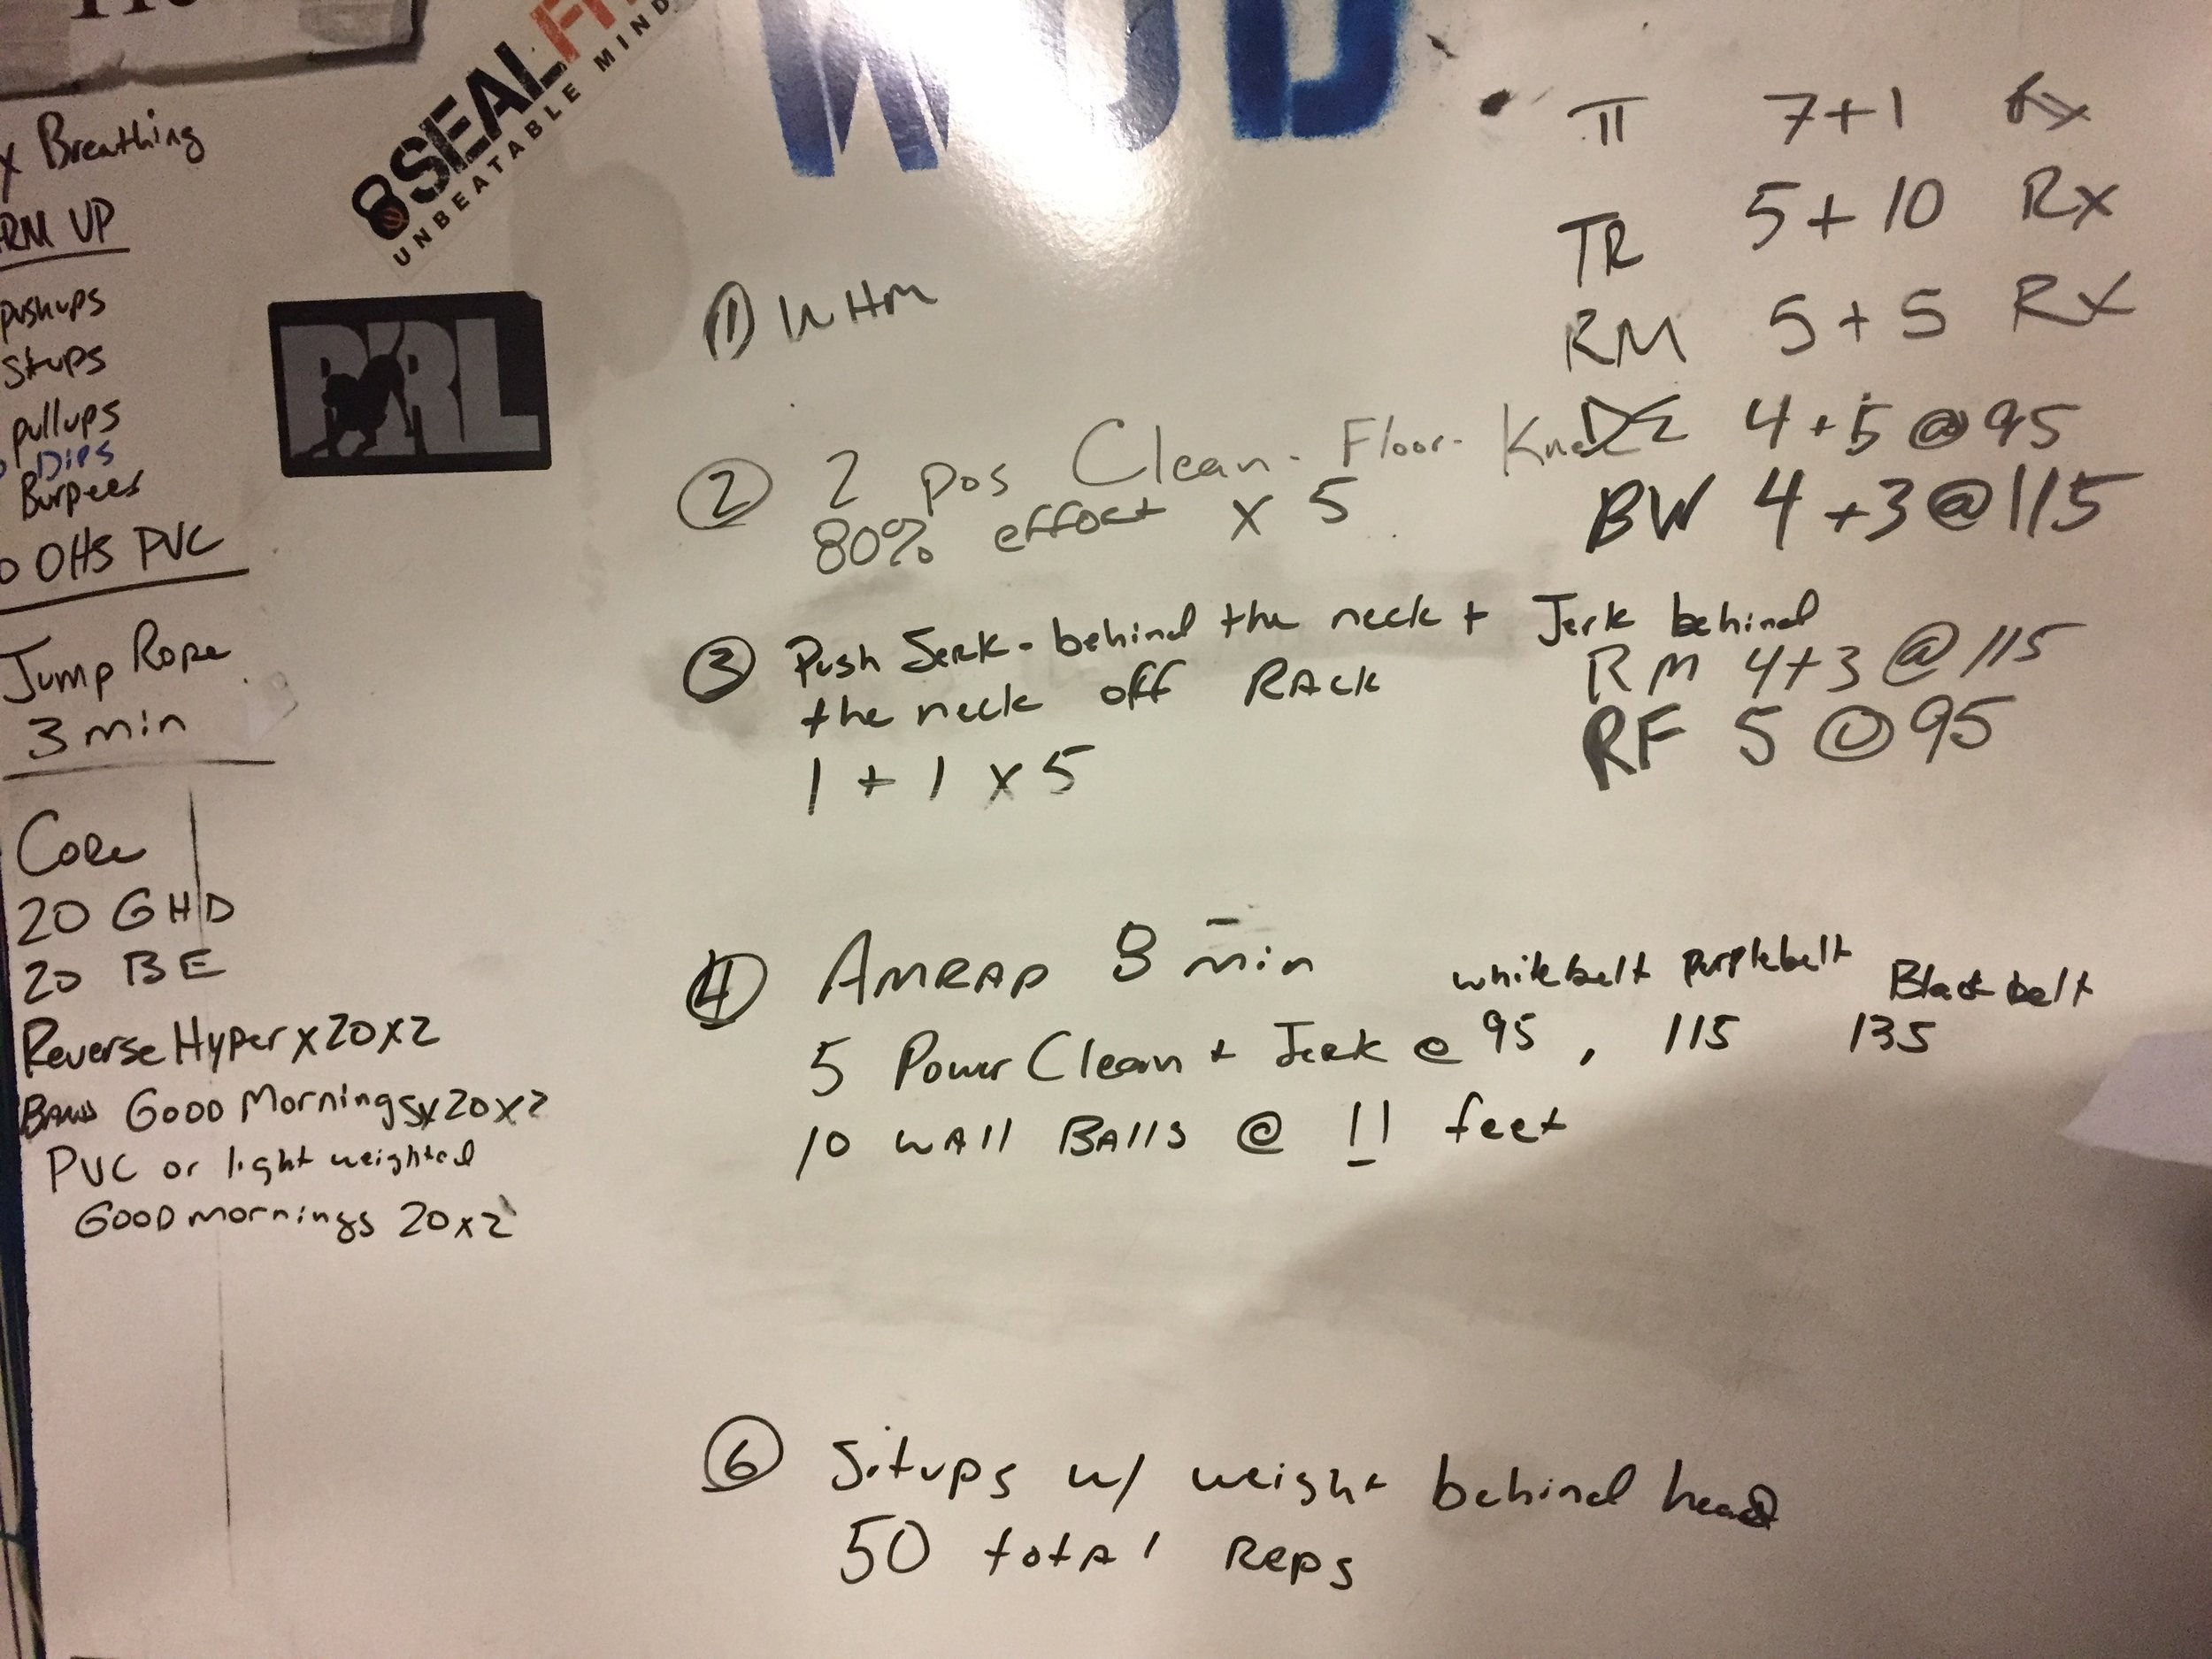 8SEALFIT
UNBEATABLE MIND
WOD
Breathing
RM UP
pushups
Situps
pullups
Dips
Burpees
OHS PVC
Jump Rope
3 min
Core
20 GHD
20 BE
Reverse Hyper x20x2
Band Good Mornings x20x2
PVC or light weighted
Good mornings 20x2
① WHM
② 2 pos Clean - Floor - Knee
80% effort x 5
③ Push Jerk - behind the neck + Jerk behind
the neck off RACK
1 + 1 x 5
④ AMRAP 8 min
whitebelt purplebelt Blackbelt
5 Power Clean + Jerk @ 95, 115 135
10 WAll BAlls @ 11 feet
⑥ Situps w/ weight behind head
50 totAl Reps
7+1 Rx
TR 5+10 Rx
RM 5+5 Rx
DE 4+5 @95
BW 4+3@115
RM 4+3 @115
RF 5 @95